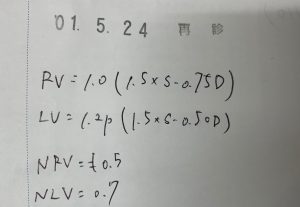 '01. 5. 24 再 診
RV = 1.0 ( 1.5 x S - 0.75D )
LV = 1.2p ( 1.5 x S - 0.50D )
NRV = 0.5
NLV = 0.7